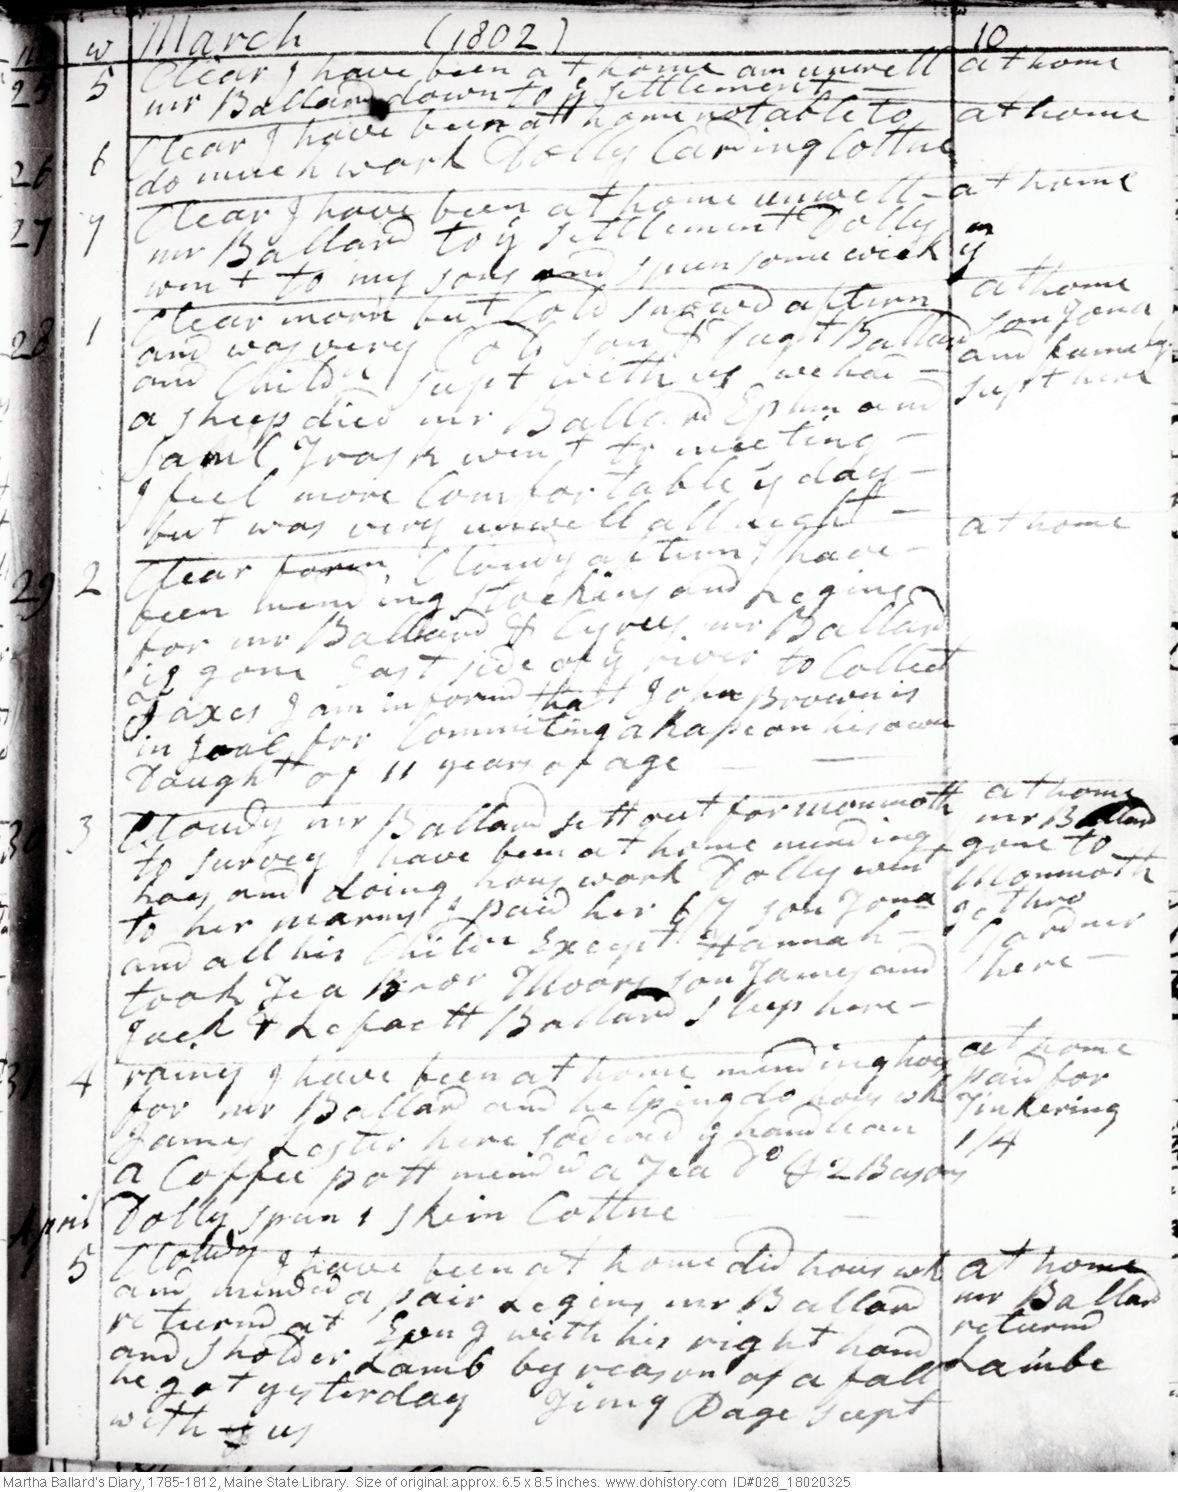 m w March (1802) 10
25 5 Clear I have been at home am unwell at home
mr Ballard down to ye settlement
26 6 Clear I have been att home not able to at home
do much work Dolly Carding Cottne
27 7 Clear I have been at home unwell at home
mr Ballard to ye settlement Dolly
went to my sons and spun some wick
28 1 Clear morn but Cold snowd aftern at home
and was very Cold son J Ballard son Jona
and Childn supt with us we had and family
a sheep died mr Ballard Ephm and supt here
Saml Trask went to meeting
I feel more Comfortable ye day
but was very unwell all night
29 2 Clear foren, Cloudy aftern I have at home
been mending stockins and Legins
for mr Ballard & Cyrus. mr Ballard
is gone East side of ye river to Collect
Taxes I am informd that John Brown is
in Joal for Commiting a Rape on his own
Daught of 11 years of age
30 3 Cloudy mr Ballard sett out for monmoth at home
to survey I have been at home mending mr Ballard
hoes and doing hous work Dolly went gone to
to her marms I paid her 6/7 son Jona Monmoth
and all his Childn Except Hannah Jethro
took Tea Bror Moors son James and Gardner
Jack & Lefaett Ballard sleep here here
31 4 rainy I have been at home mending hoes at home
for mr Ballard and helping do hous wk paid for
James Lester here soderd ye handle on Tinkering
a Coffee pott mendid a Tea do & 2 Basons 1/4
April Dolly spun 1 skein Cottne
1 5 Cloudy I have been at home did hous wk at home
and mendid a pair Legins mr Ballard mr Ballard
returnd at Evng with his right hand returnd
and sholder Lamb by reason of a fall Lambe
he got yesterday Page supt
with us
Martha Ballard's Diary, 1785-1812, Maine State Library. Size of original: approx. 6.5 x 8.5 inches. www.dohistory.com ID#028_18020325